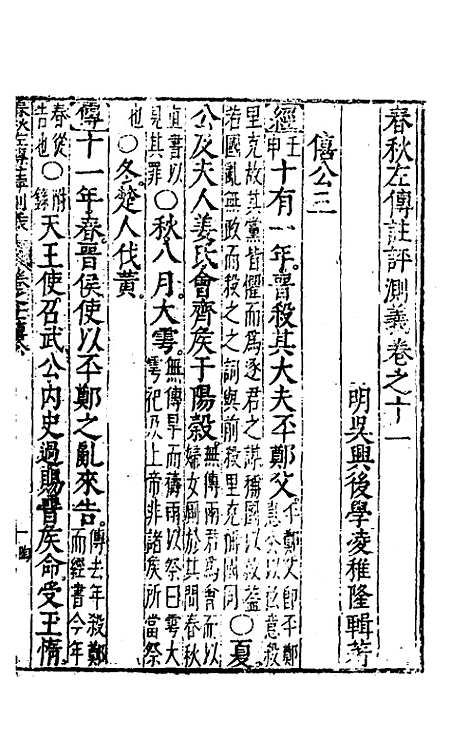 春秋左傳註評測義卷之十一
明吳興後學凌稚隆輯著
僖公三
經壬申十有一年晉殺其大夫丕鄭父丕鄭父即丕鄭惠公以私意殺
里克故其黨皆懼而為逐君之謀禍國以致益
若國亂無政而殺之之詞與前殺里克稱國同〇夏
公及夫人姜氏會齊侯于陽穀無傳兩君為會而以婦女與於其間春秋
直書以見其罪〇秋八月大雩無傳旱而禱雨以祭曰雩大雩祀及上帝非諸侯所當祭
也〇冬楚人伐黃
傳十一年春晉侯使以丕鄭之亂來告傳去年殺鄭而經書今年
春從告也〇附錄天王使召武公內史過賜晉侯命受玉惰